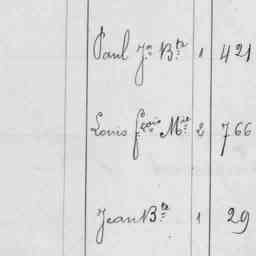 Paul Jn Bte 1 421
Louis fçois Mie 2 766
Jean Bte 1 29